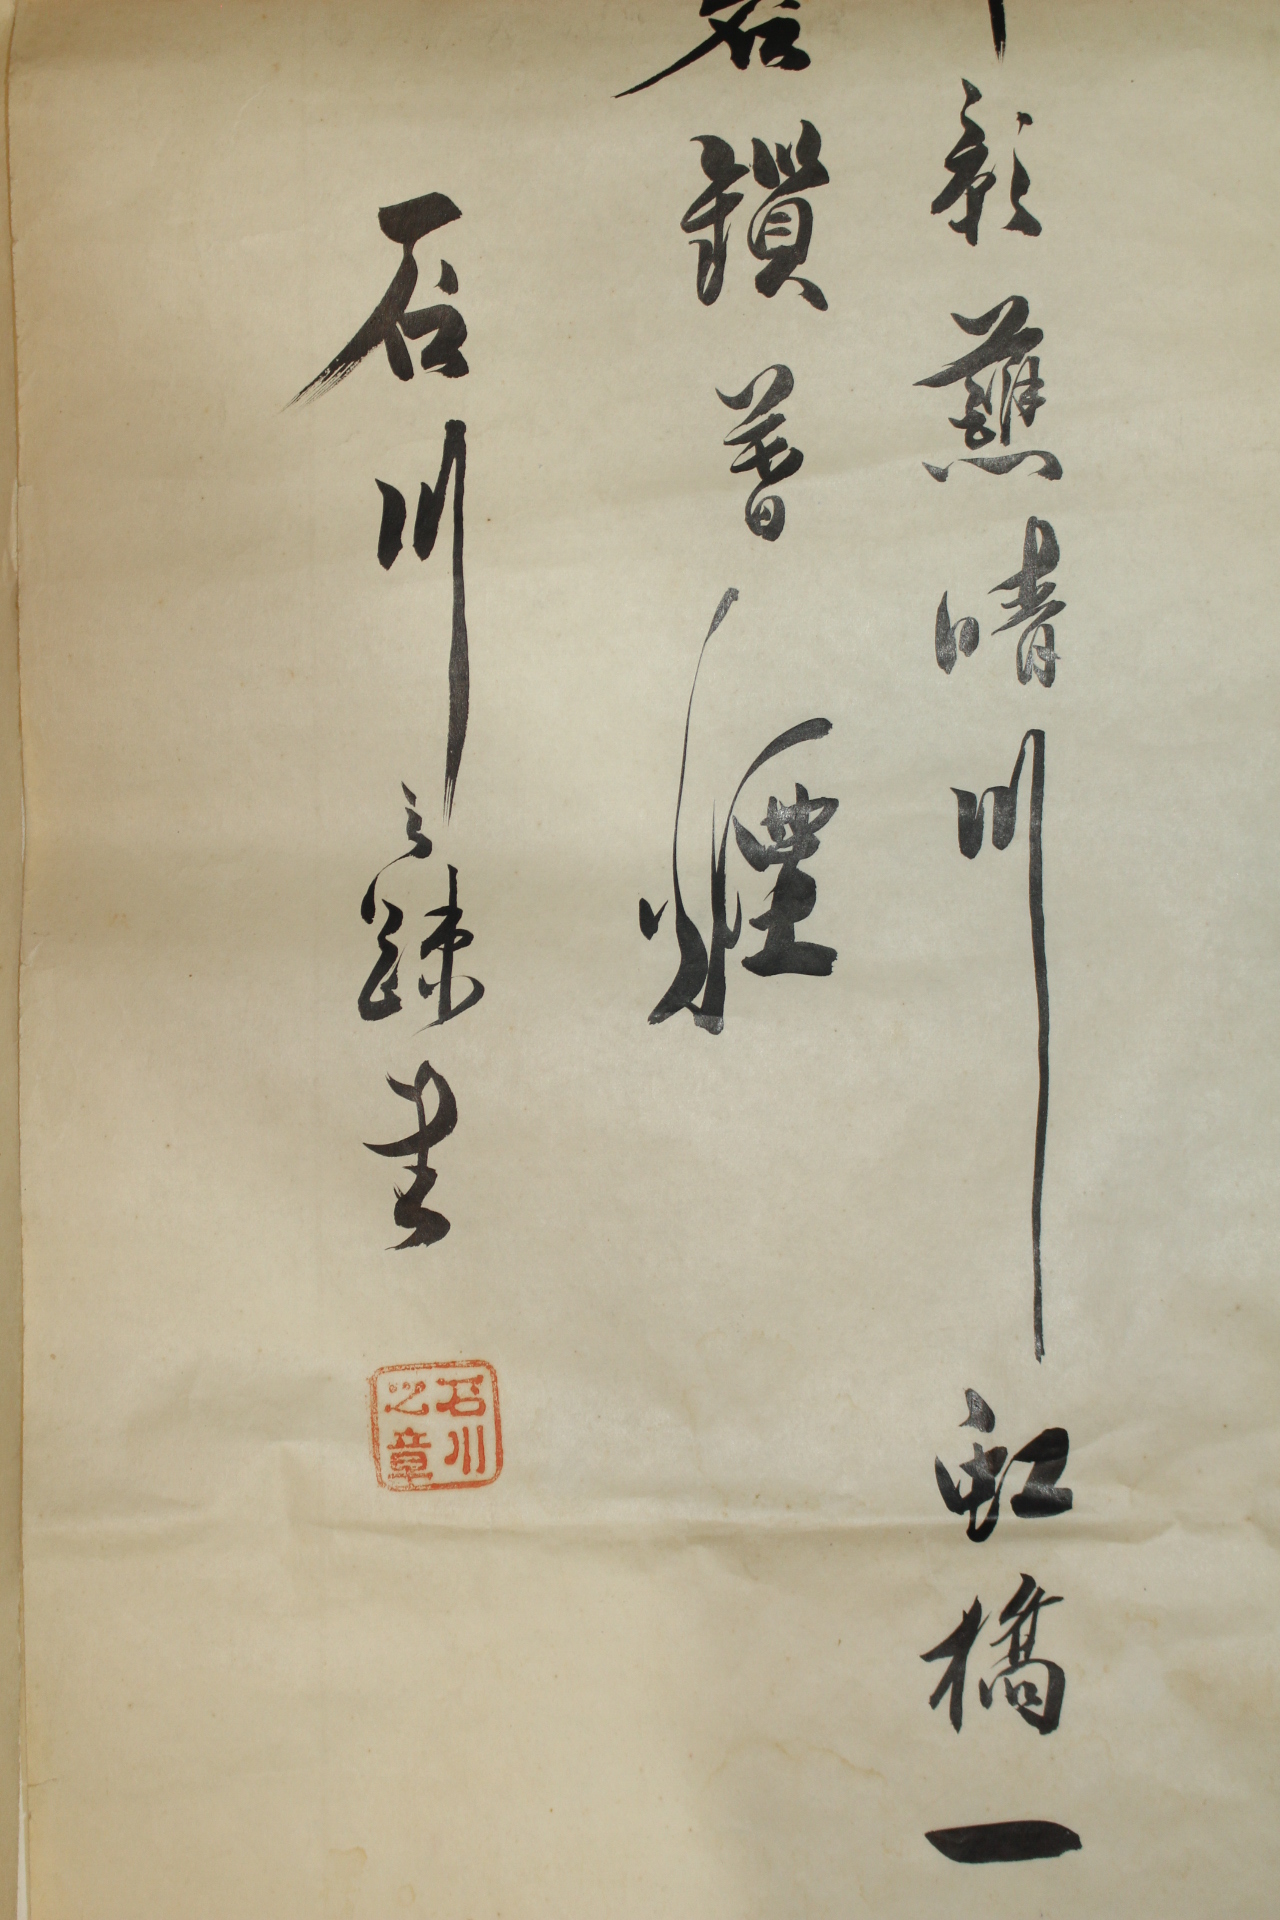 影蘸晴川虹橋一
鎖暮煙
石川之踈書
石川
之章